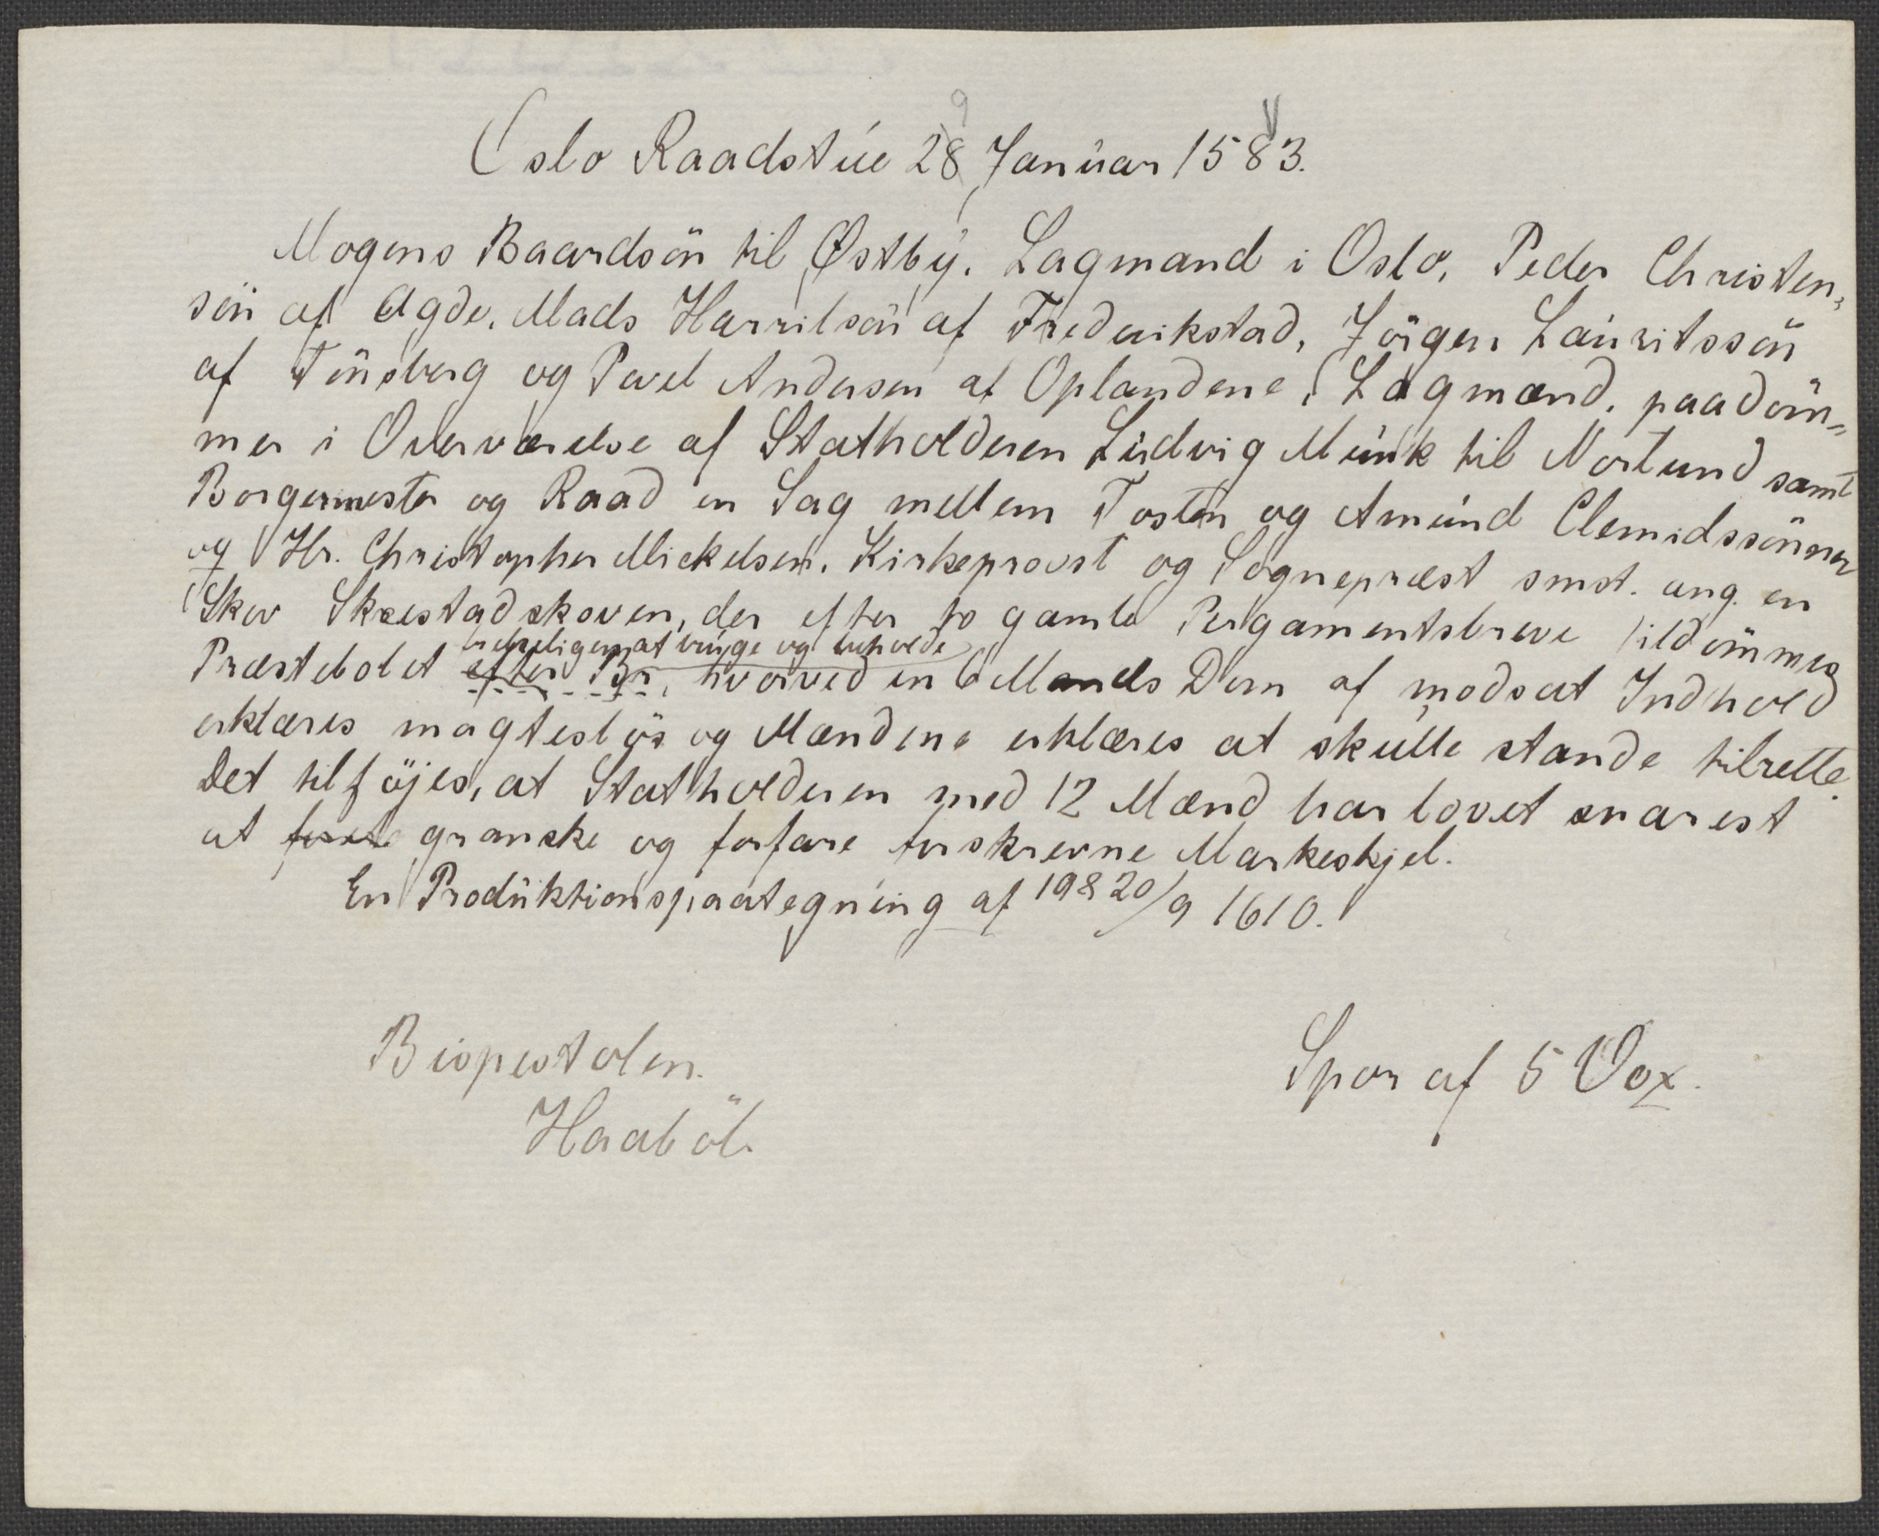 Oslo Raadstue 28 9 Januar 1583. V
Mogens Baardsön til Østby. Lagmand i Oslo, Peder Christen„
sön af Agde. Mads Harrilsön af Frederikstad, Jörgen Lauritssön
af Tönsberg og Povel Andersen af Oplandene, Lagmænd, paadöm„
mer i Overværelse af Statholderen Ludvig Munk til Norlund samt
Borgermester og Raad en Sag mellem Tosten og Amund Clemidssönner
og Hr. Christopher Mickelsen. Kirkeprovst og Sognepræst smst. ang. en
Skov Skæestadskoven, der efter to gamle Pergamentsbreve tildömmes
at bruge og beholde
Præstebolet efter Br, hvorved en 6 Mands Dom af modsat Indhold
erklæres magteslös og Mændene erklæres at skulle stande tilrette.
Det tilföjes, at Statholderen med 12 Mænd har lovet snarest
at granske og forfare forskrevne Markeskjel.
En Produktionspaategning af 19 & 20/9 1610.
Bispestolen.
Spor af 5 Vox.
Haaböl.